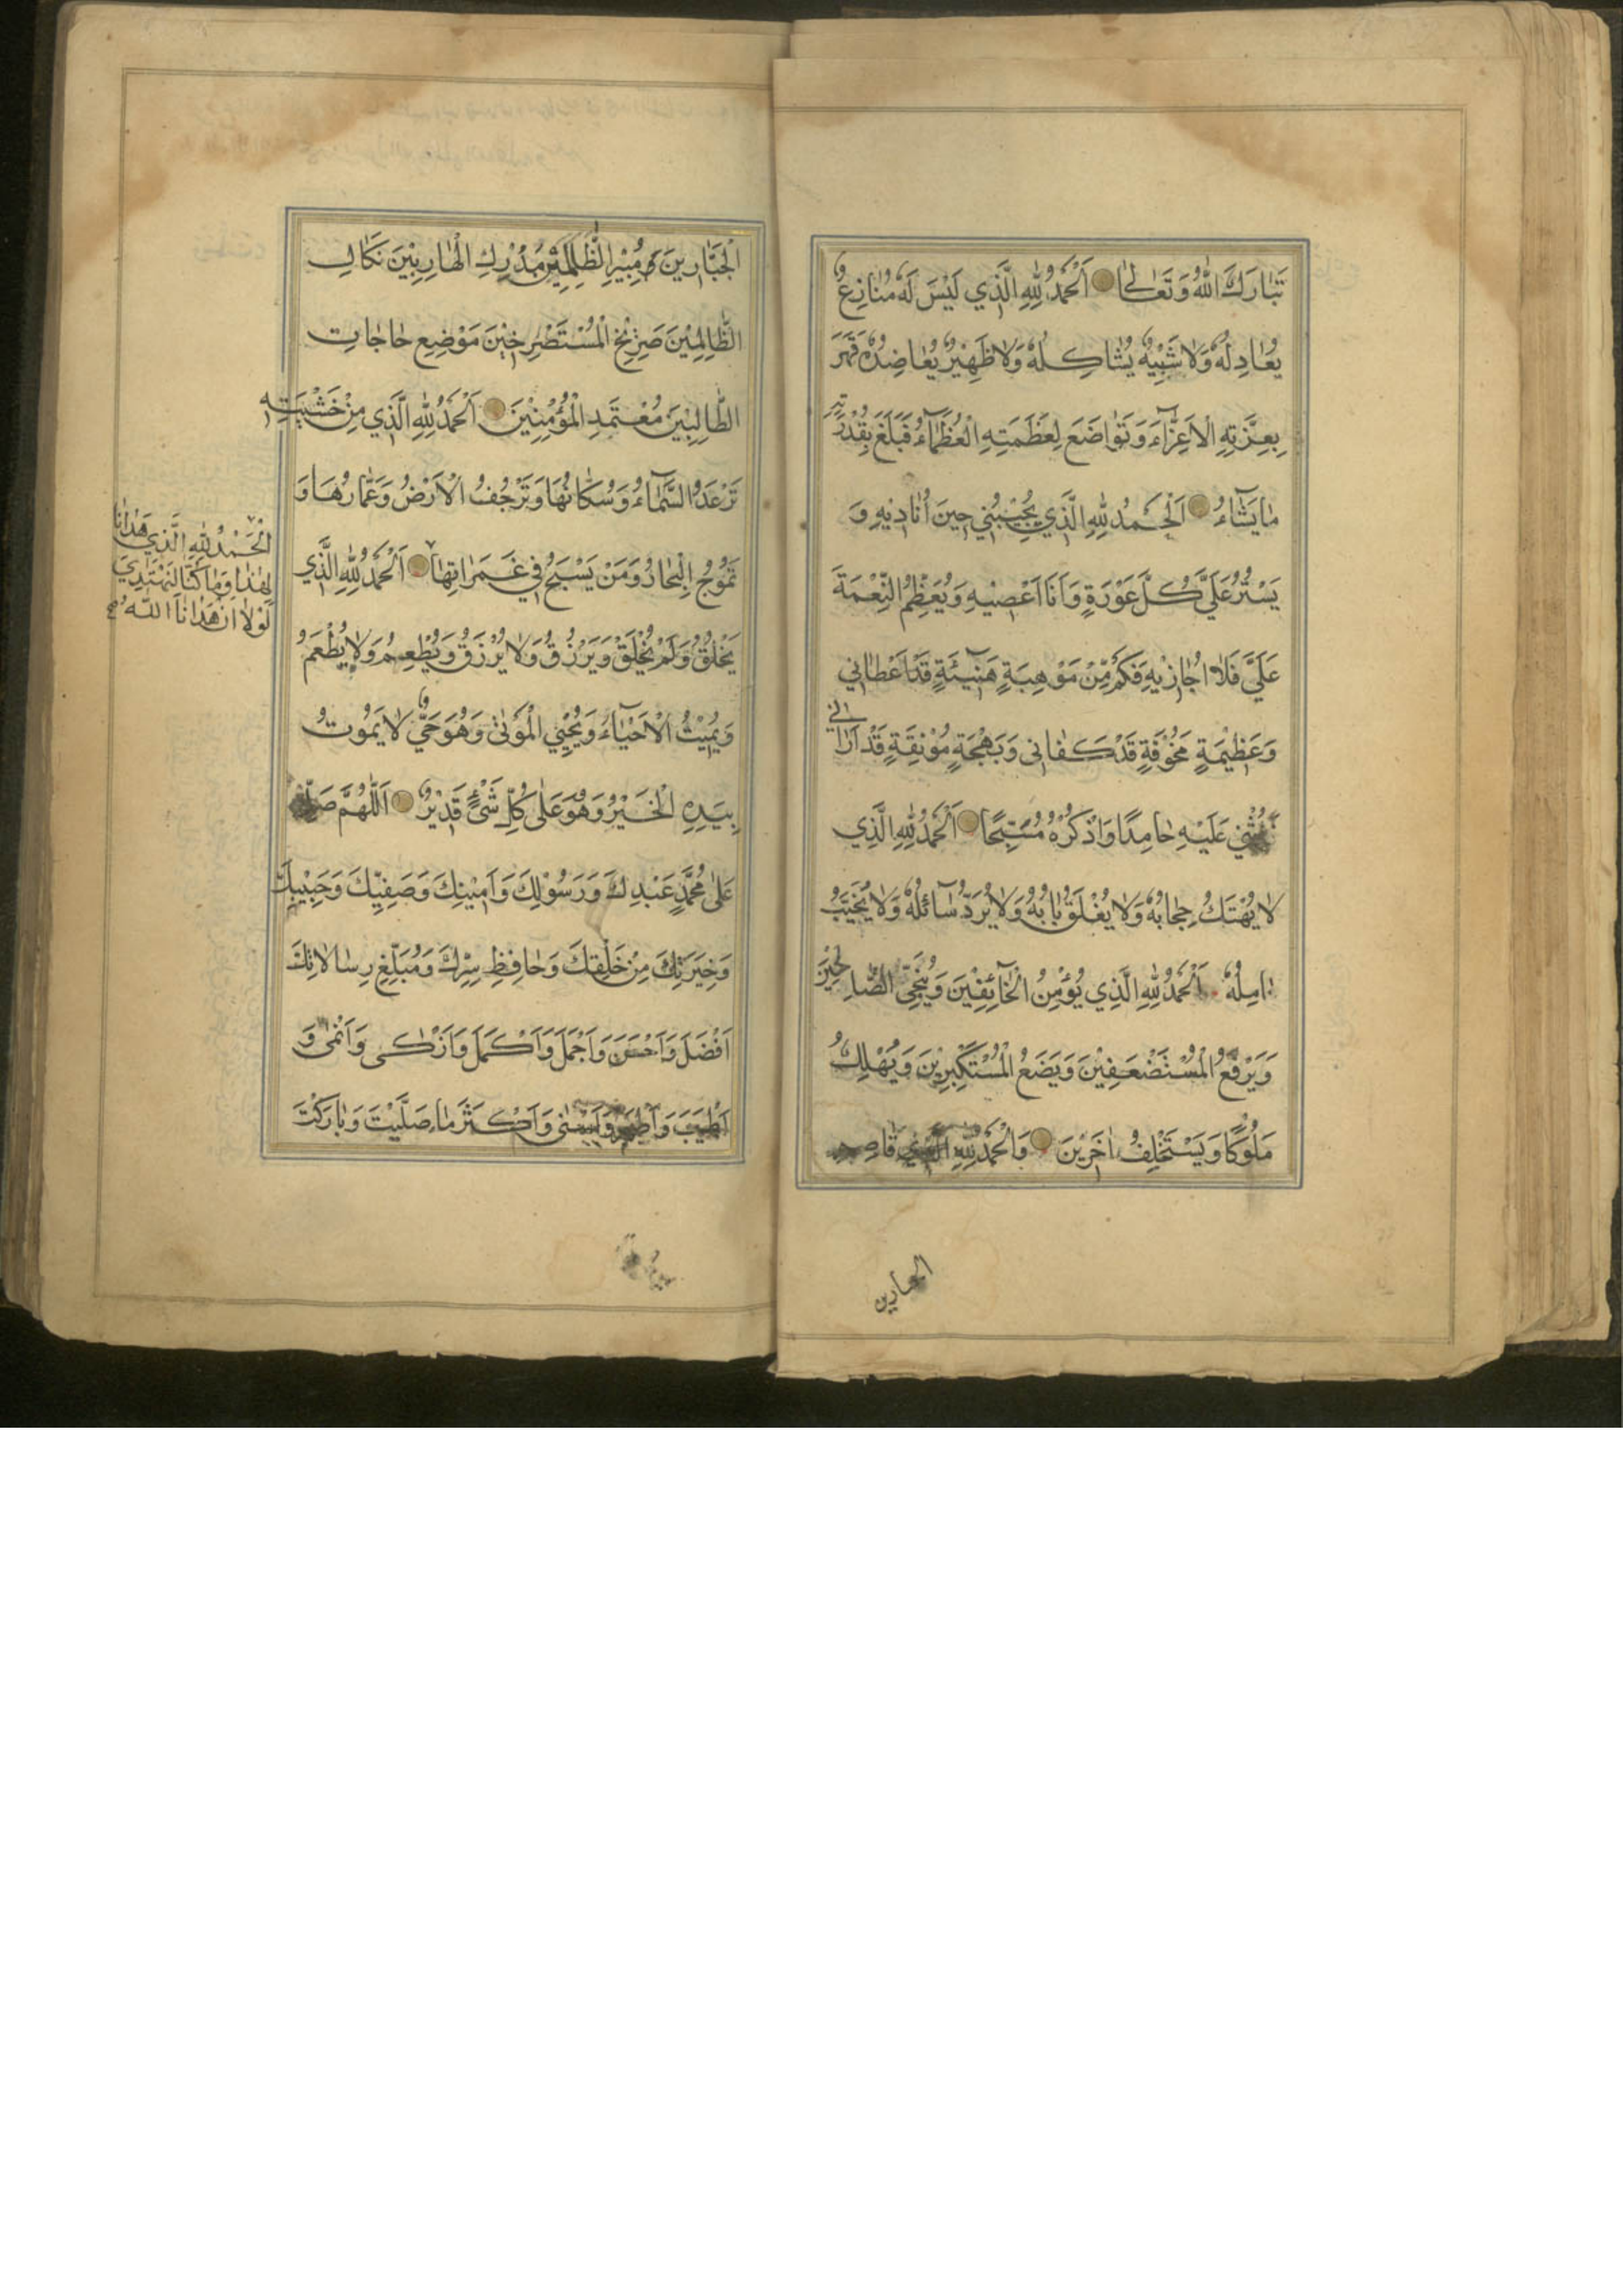 تَبَارَكَ اللّٰهُ وَتَعَالٰى اَلْحَمْدُ لِلّٰهِ الَّذِي لَيْسَ لَهُ مُنَازِعٌ
يُعَادِلُهُ وَلَا شَبِيْهٌ يُشَاكِلُهُ وَلَا ظَهِيْرٌ يُعَاضِدُهُ قَهَرَ
بِعِزَّتِهِ الْاَعِزَّاءَ وَتَوَاضَعَ لِعَظَمَتِهِ الْعُظَمَاءُ فَبَلَغَ بِقُدْرَتِهِ
مَا يَشَاءُ اَلْحَمْدُ لِلّٰهِ الَّذِي يُجِيْبُنِي حِيْنَ اُنَادِيْهِ وَ
يَسْتُرُ عَلَيَّ كُلَّ عَوْرَةٍ وَاَنَا اَعْصِيْهِ وَيُعَظِّمُ النِّعْمَةَ
عَلَيَّ فَلَا اُجَازِيْهِ فَكَمْ مِنْ مَوْهِبَةٍ هَنِيْئَةٍ قَدْ اَعْطَانِي
وَعَظِيْمَةٍ مَخُوْفَةٍ قَدْ كَفَانِي وَبَهْجَةٍ مُوْنِقَةٍ قَدْ اَرَانِي
فَاُثْنِي عَلَيْهِ حَامِدًا وَاَذْكُرُهُ مُسَبِّحًا اَلْحَمْدُ لِلّٰهِ الَّذِي
لَا يُهْتَكُ حِجَابُهُ وَلَا يُغْلَقُ بَابُهُ وَلَا يُرَدُّ سَائِلُهُ وَلَا يُخَيَّبُ
اٰمِلُهُ اَلْحَمْدُ لِلّٰهِ الَّذِي يُؤْمِنُ الْخَائِفِيْنَ وَيُنَجِّي الصَّالِحِيْنَ
وَيَرْفَعُ الْمُسْتَضْعَفِيْنَ وَيَضَعُ الْمُسْتَكْبِرِيْنَ وَيُهْلِكُ
مُلُوْكًا وَيَسْتَخْلِفُ اٰخَرِيْنَ وَالْحَمْدُ لِلّٰهِ قَاصِمِ
الجبارين
الْجَبَّارِيْنَ مُبِيْرِ الظَّالِمِيْنَ مُدْرِكِ الْهَارِبِيْنَ نَكَالِ
الظَّالِمِيْنَ صَرِيْخِ الْمُسْتَصْرِخِيْنَ مَوْضِعِ حَاجَاتِ
الطَّالِبِيْنَ مُعْتَمَدِ الْمُؤْمِنِيْنَ اَلْحَمْدُ لِلّٰهِ الَّذِي مِنْ خَشْيَتِهِ
تَرْعَدُ السَّمَاءُ وَسُكَّانُهَا وَتَرْجُفُ الْاَرْضُ وَعُمَّارُهَا وَ
تَمُوْجُ الْبِحَارُ وَمَنْ يَسْبَحُ فِي غَمَرَاتِهَا اَلْحَمْدُ لِلّٰهِ الَّذِي
يَخْلُقُ وَلَمْ يُخْلَقْ وَيَرْزُقُ وَلَا يُرْزَقُ وَيُطْعِمُ وَلَا يُطْعَمُ
وَيُمِيْتُ الْاَحْيَاءَ وَيُحْيِي الْمَوْتٰى وَهُوَ حَيٌّ لَا يَمُوْتُ
بِيَدِهِ الْخَيْرُ وَهُوَ عَلٰى كُلِّ شَيْءٍ قَدِيْرٌ اَللّٰهُمَّ صَلِّ
عَلٰى مُحَمَّدٍ عَبْدِكَ وَرَسُوْلِكَ وَاَمِيْنِكَ وَصَفِيِّكَ وَحَبِيْبِكَ
وَخِيَرَتِكَ مِنْ خَلْقِكَ وَحَافِظِ سِرِّكَ وَمُبَلِّغِ رِسَالَاتِكَ
اَفْضَلَ وَاَحْسَنَ وَاَجْمَلَ وَاَكْمَلَ وَاَزْكٰى وَاَنْمٰى وَ
اَطْيَبَ وَاَطْهَرَ وَاَسْنٰى وَاَكْثَرَ مَا صَلَّيْتَ وَبَارَكْتَ
اَلْحَمْدُ لِلّٰهِ الَّذِي هَدَانَا
لِهٰذَا وَمَا كُنَّا لِنَهْتَدِيَ
لَوْلَا اَنْ هَدَانَا اللّٰهُ